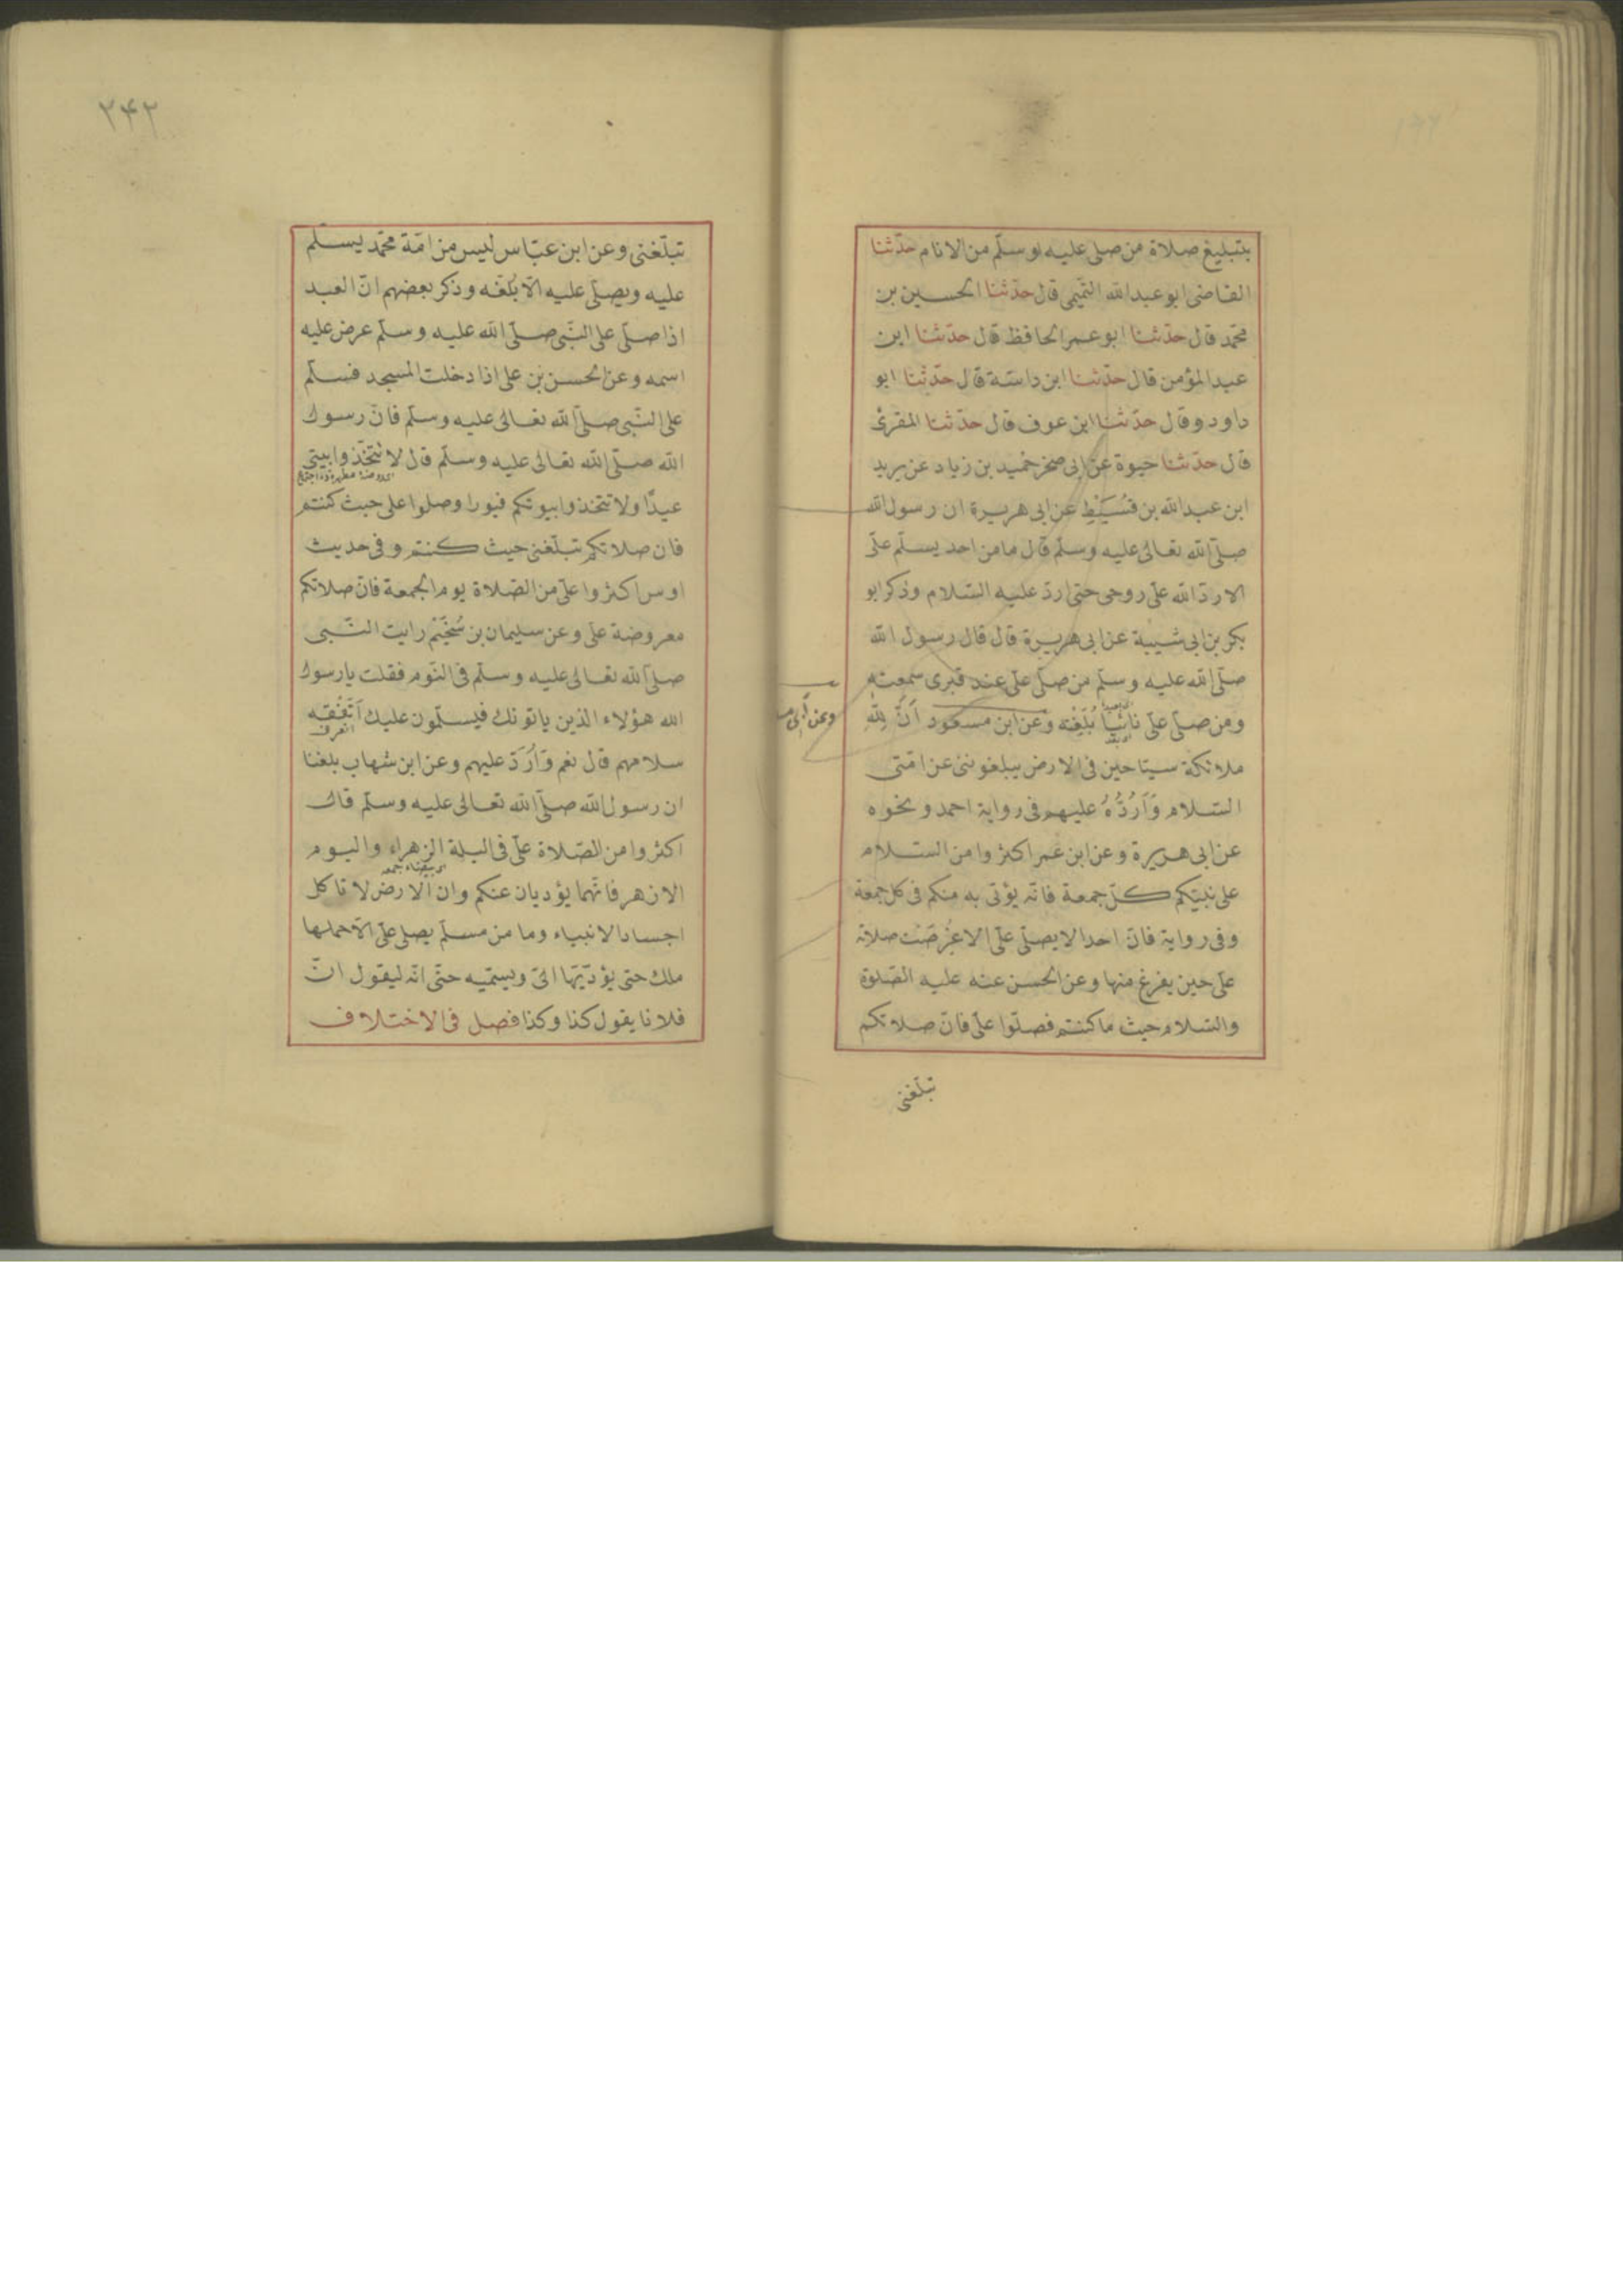 بتبليغ صلاة من صلى عليه او سلّم من الانام حدّثنا
القاضى ابو عبد الله التميمى قال حدّثنا الحسين بن
محمّد قال حدّثنا ابو عمر الحافظ قال حدّثنا ابن
عبد المؤمن قال حدّثنا ابن داسة قال حدّثنا ابو
داود وقال حدّثنا ابن عوف قال حدّثنا المقرئ
قال حدّثنا حيوة عن ابى صخر حُميد بن زياد عن يزيد
ابن عبد الله بن قُسَيْطِ عن ابى هريرة ان رسول الله
صلّى الله تعالى عليه وسلّم قال ما من احد يسلّم علىّ
الا ردّ الله علىّ روحى حتى اردّ عليه السّلام وذكر ابو
بكر بن ابى شيبة عن ابى هريرة قال قال رسول الله
صلّى الله عليه وسلّم من صلّى علىّ عند قبرى سمعته
ومن صلّى علىّ نائيًا بُلّغته وعن ابن مسعود انّ لِلّٰهِ
ملائكة سيّاحين فى الارض يبلغوننى عن امّتى
السّلام وَاَرُدُّهُ عليهم فى رواية احمد ونحوه
عن ابى هريرة وعن ابن عمر اكثروا من السّلام
على نبيّكم كلّ جمعة فانّه يؤتى به منكم فى كل جمعة
وفى رواية فانّ احدا لا يصلّى علىّ الا عُرِضَت صلاته
علىّ حين يفرغ منها وعن الحسن عنه عليه الصّلوة
والسّلام حيث ما كنتم فصلّوا علىّ فانّ صلاتكم
تبلّغنى
٢۴٢
تبلّغنى وعن ابن عبّاس ليس من امّة محمّد يسلّم
عليه ويصلّى عليه الاّ بُلّغه وذكر بعضهم انّ العبد
اذا صلّى على النّبى صلّى الله عليه وسلّم عرض عليه
اسمه وعن الحسن بن على اذا دخلت المسجد فسلّم
على النّبى صلّى الله تعالى عليه وسلّم فانّ رسول
الله صلّى الله تعالى عليه وسلّم قال لا تتّخذوا بيتى
عيدًا ولا تتخذوا بيوتكم قبورا وصلوا على حيث كنتم
فان صلاتكم تبلّغنى حيث كنتم وفى حديث
اوس اكثروا علىّ من الصّلاة يوم الجمعة فانّ صلاتكم
معروضة علىّ وعن سليمان بن سُحَيْم رايت النّبى
صلّى الله تعالى عليه وسلّم فى النّوم فقلت يا رسول
الله هؤلاء الذين ياتونك فيسلّمون عليك اَتَفْقَه
سلامهم قال نعم وَاَرُدّ عليهم وعن ابن شهاب بلغنا
ان رسول الله صلّى الله تعالى عليه وسلّم قال
اكثروا من الصّلاة علىّ فى اليلة الزهراء واليوم
الازهر فانّهما يؤديان عنكم وان الارض لا تاكل
اجساد الانبياء وما من مسلّم يصلى علىّ الاّ حملها
ملك حتى يؤدّيها الىّ ويسمّيه حتّى انّه ليقول انّ
فلانا يقول كذا وكذا فصل فى الاختلاف